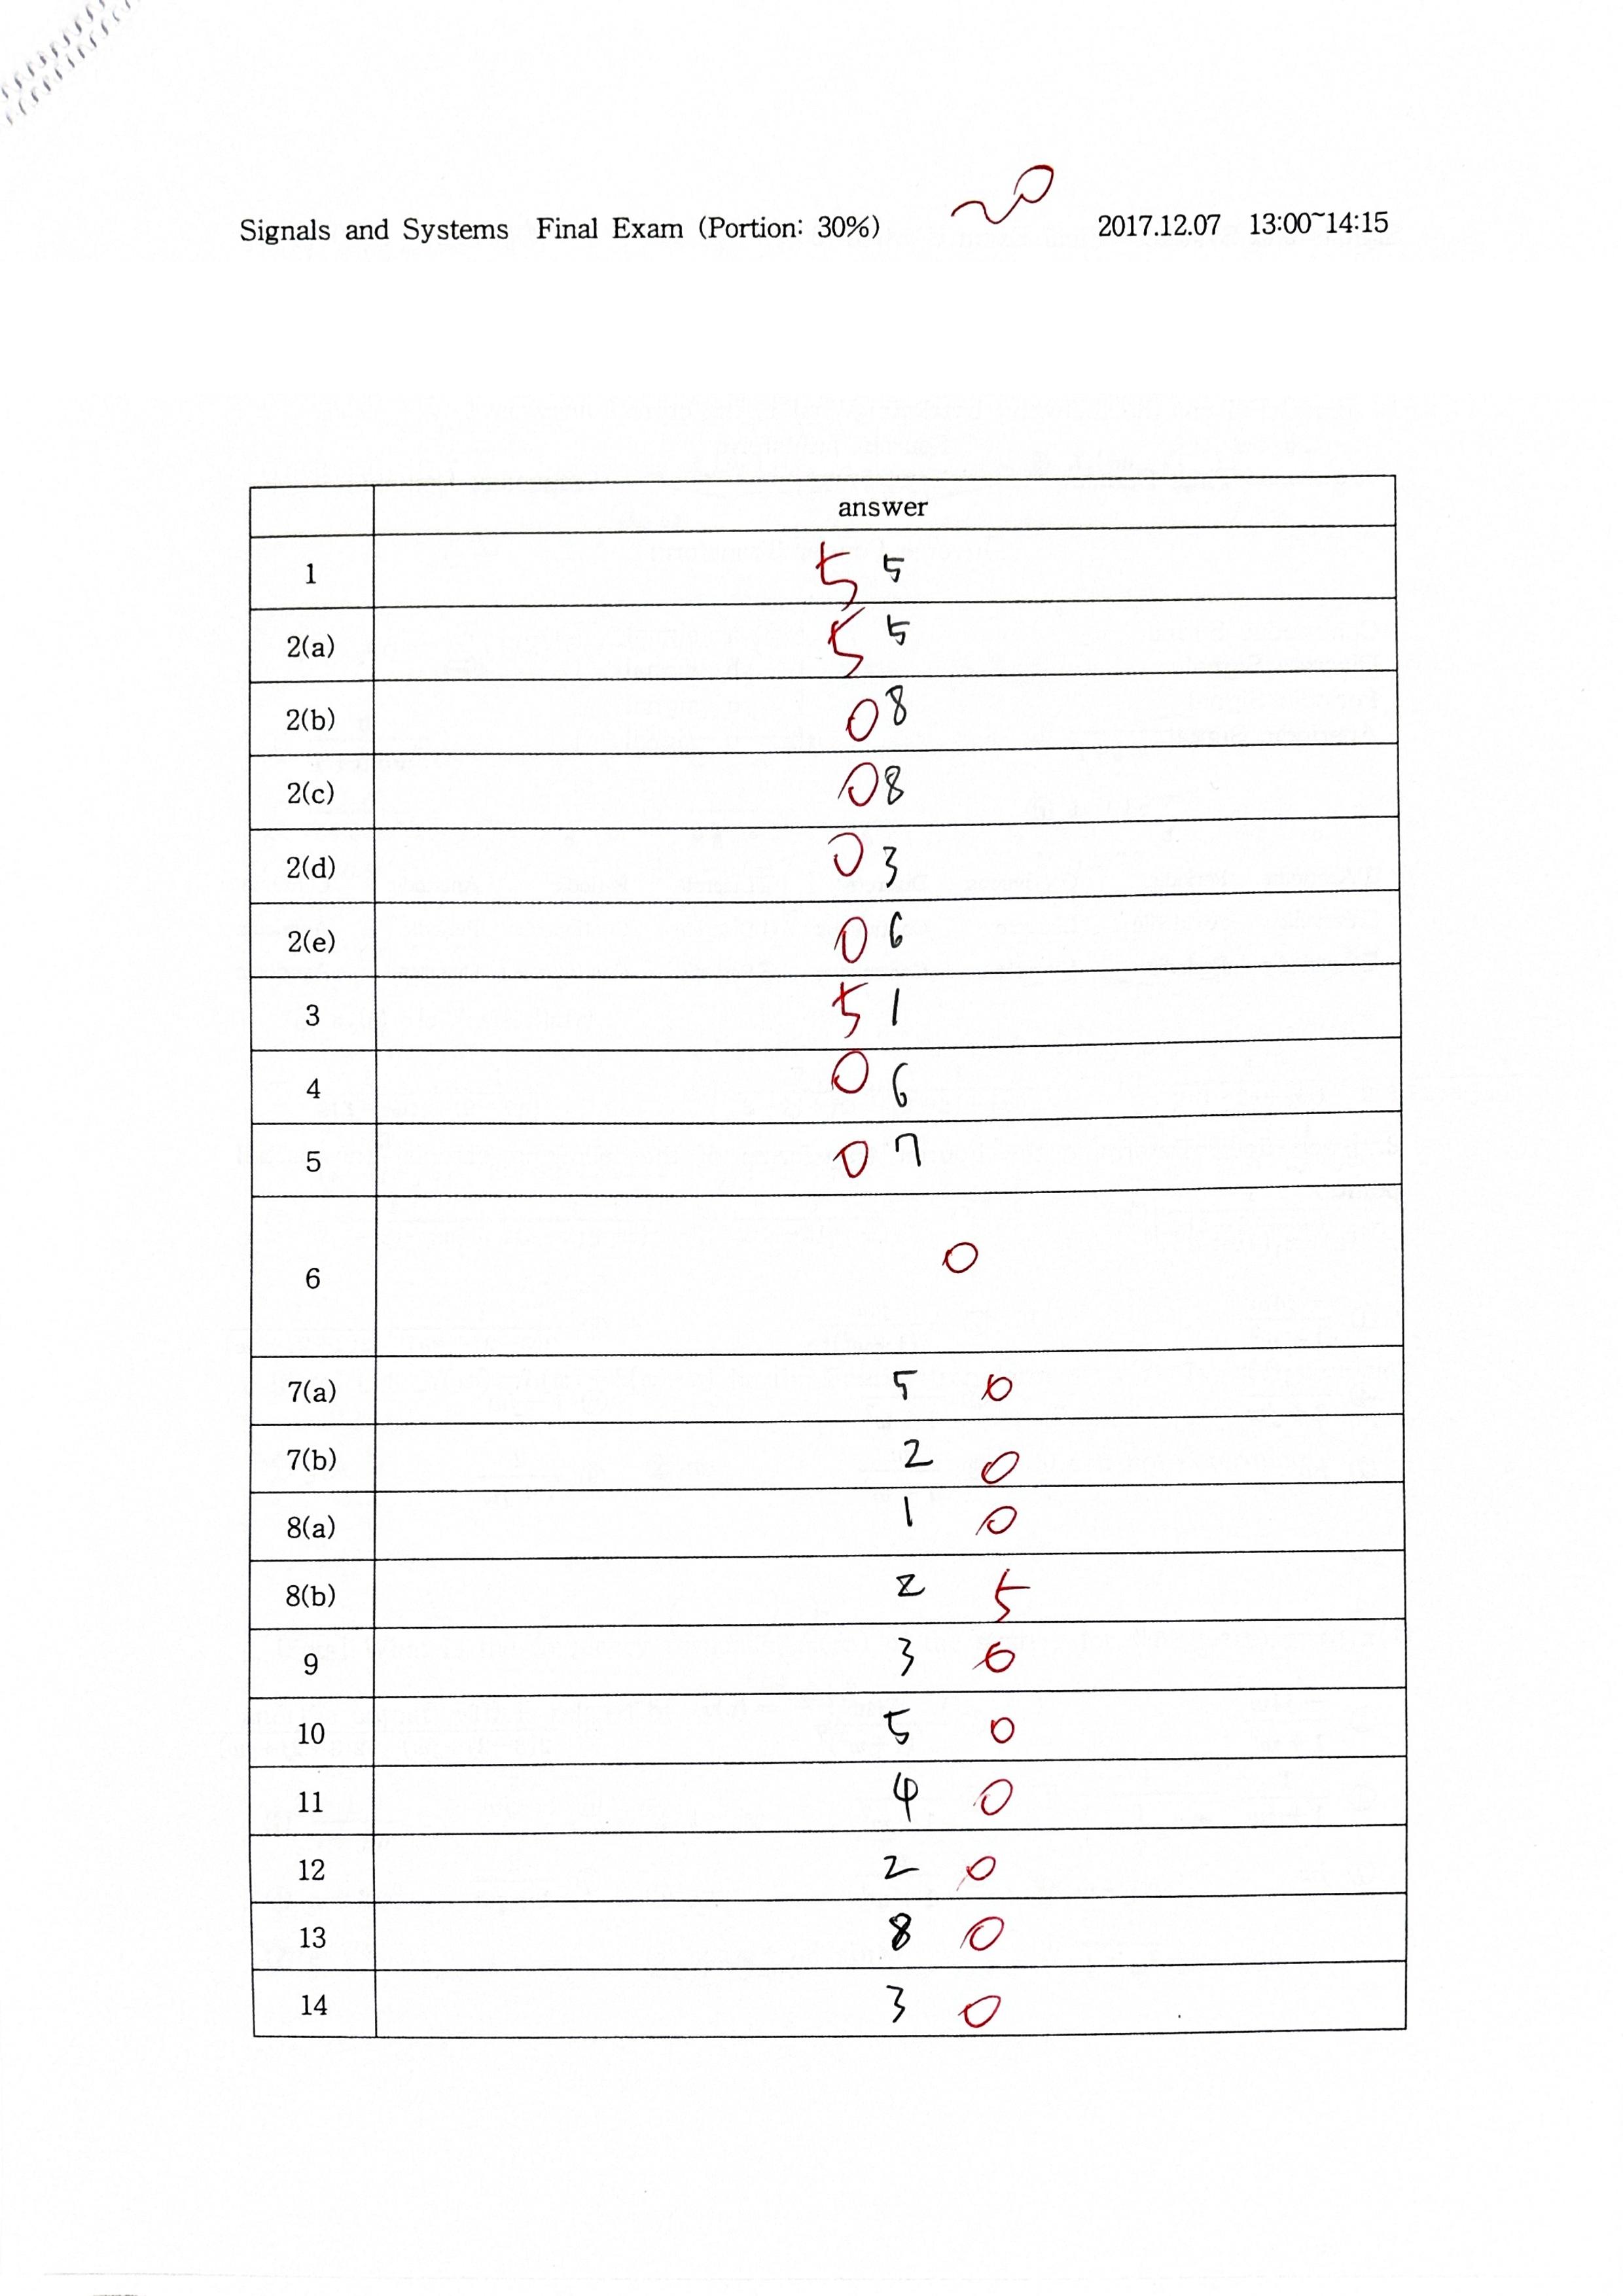 20
Signals and Systems Final Exam (Portion: 30%) 2017.12.07 13:00~14:15
answer
1 5 5
2(a) 5 5
2(b) 0 8
2(c) 0 8
2(d) 0 3
2(e) 0 6
3 5 1
4 0 6
5 0 7
6 0
7(a) 5 0
7(b) 2 0
8(a) 1 0
8(b) 2 5
9 3 0
10 5 0
11 4 0
12 2 0
13 8 0
14 3 0